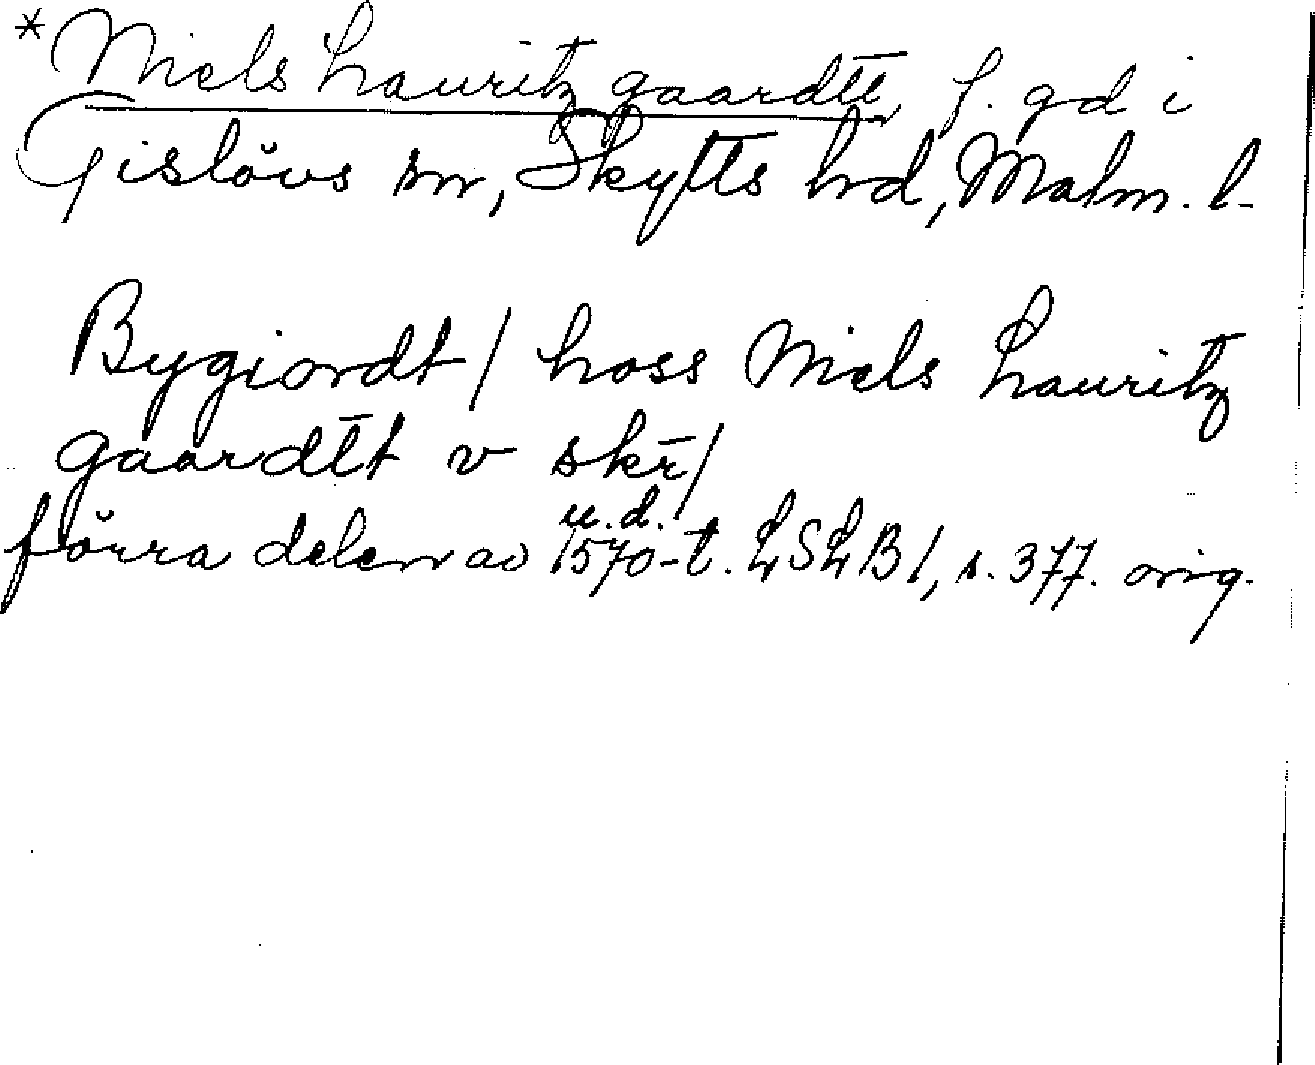 *Niels Lauritz gaardtt, f. gd i
Gislövs sn, Skytts hd, Malm. l.
Bygiordt / hoss Niels Lauritz
gaardtt v skr̄/
u.d.
förra delen av 1570-t. LSLB1, s. 377. orig.